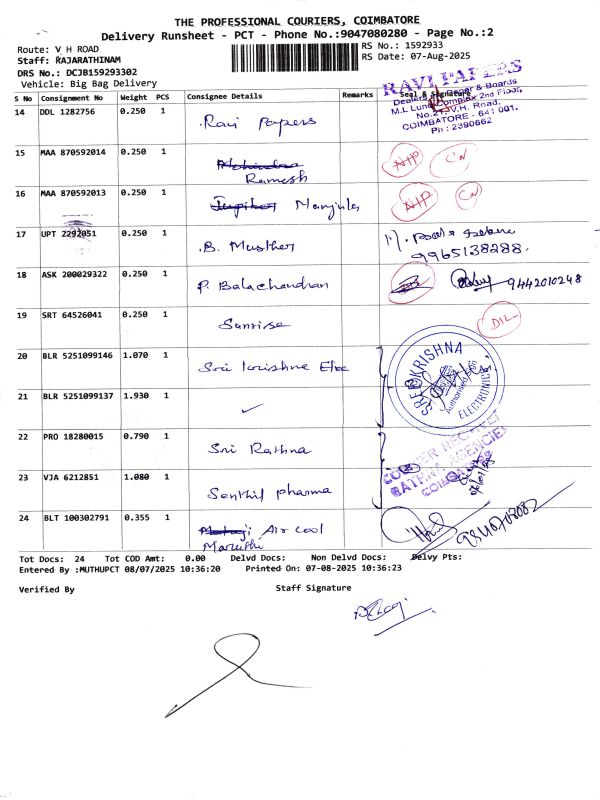 THE PROFESSIONAL COURIERS, COIMBATORE
Delivery Runsheet - PCT - Phone No.:9047080280 - Page No.:2
Route: V H ROAD
Staff: RAJARATHINAM
DRS No.: DCJB159293302
Vehicle: Big Bag Delivery
RS No.: 1592933
RS Date: 07-Aug-2025
S No Consignment No Weight PCS Consignee Details Remarks Seal & Signature
RAVI PAPERS
Dealers in Paper & Boards
M.L Lund Complex 2nd Floor,
No.21, V.H. Road,
COIMBATORE - 641 001.
Ph : 2390662
14 DDL 1282756 0.250 1 Ravi Papers
15 MAA 870592014 0.250 1 Mohindra
Ramesh
16 MAA 870592013 0.250 1 Manjula
17 UPT 2292051 0.250 1 B. Musther
9965138288
18 ASK 200029322 0.250 1 P. Balachandran 9442010248
19 SRT 64526041 0.250 1 Sunrise
20 BLR 5251099146 1.070 1 Sri Krishna Elec
SREE KRISHNA ELECTRONICS
Authorised Sign
21 BLR 5251099137 1.930 1 ✓
22 PRO 18280015 0.790 1 Sri Rathna
23 VJA 6212851 1.080 1 Senthil pharma
24 BLT 100302791 0.355 1 Air cool
Maruthi
Tot Docs: 24 Tot COD Amt: 0.00 Delvd Docs: Non Delvd Docs: Delvy Pts:
Entered By :MUTHUPCT 08/07/2025 10:36:20 Printed On: 07-08-2025 10:36:23
Verified By Staff Signature